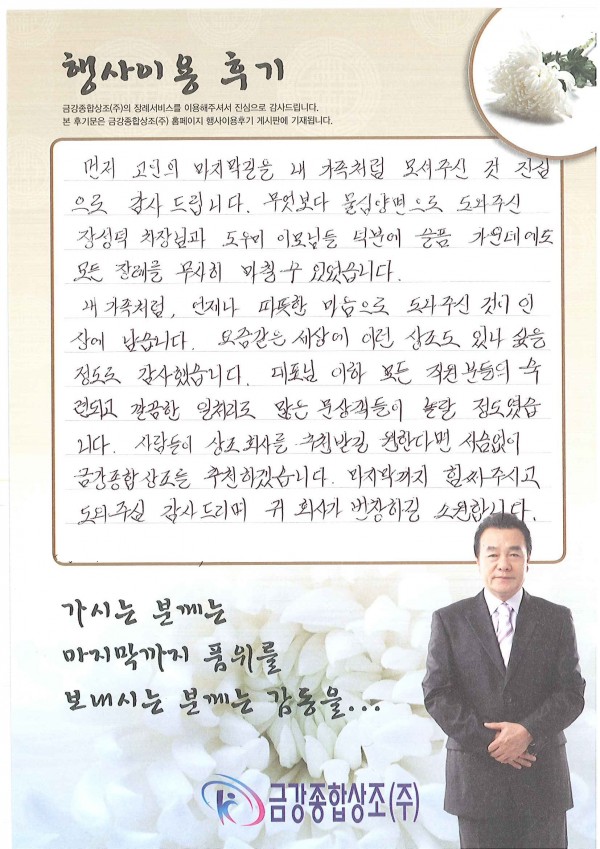 행사이용 후기
금강종합상조(주)의 장례서비스를 이용해주셔서 진심으로 감사드립니다.
본 후기문은 금강종합상조(주) 홈페이지 행사이용후기 게시판에 기재됩니다.
먼저 고인의 마지막길을 내 가족처럼 모셔주신 것 진심
으로 감사 드립니다. 무엇보다 물심양면으로 도와주신
장성덕 차장님과 도우미 이모님들 덕분에 슬픔 가운데에도
모든 장례를 무사히 마칠 수 있었습니다.
내 가족처럼, 언제나 따뜻한 마음으로 도와주신 것이 인
상에 남습니다. 요즘같은 세상에 이런 상조도 있나 싶을
정도로 감사했습니다. 대표님 이하 모든 직원분들의 숙
련되고 깔끔한 일처리로 많은 문상객들이 놀랄 정도였습
니다. 사람들이 상조회사를 추천받길 원한다면 서슴없이
금강종합상조를 추천하겠습니다. 마지막까지 힘써주시고
도와주심 감사드리며 귀 회사가 번창하길 소원합니다.
가시는 분께는
마지막까지 품위를
보내시는 분께는 감동을...
금강종합상조(주)